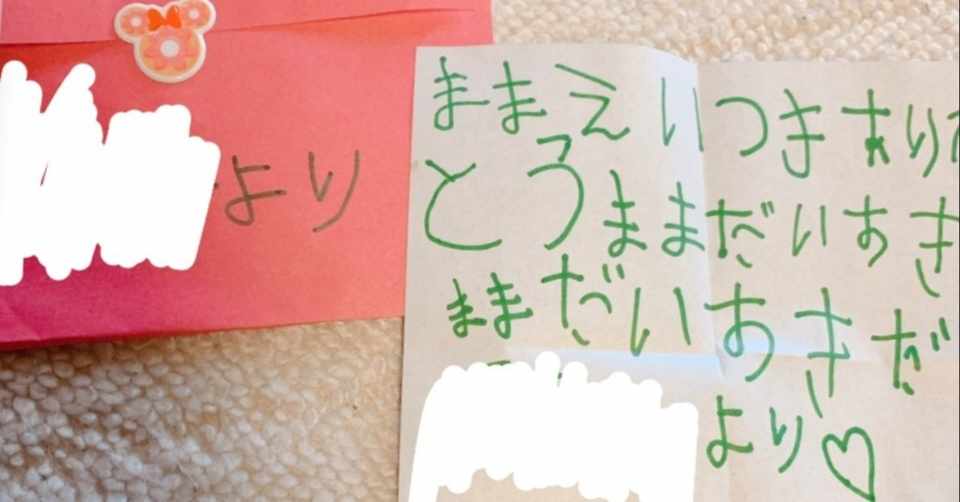 より
ままえいつきあり
とうままだいすき
ままだいすきだ
より♡